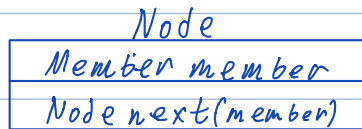 Node
Member member
Node next(member)